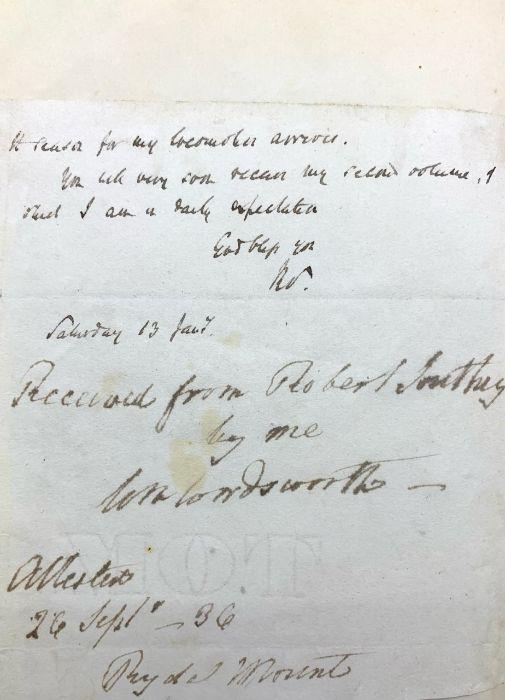 season for my locomotion arrives.
You will very soon receive my second volume, of
which I am in daily expectation
God bless you
RS.
Saturday 13 Jany.
Received from Robert Southey
by me
Wm Wordsworth —
Attested
26 Septr — 36
Rydal Mount